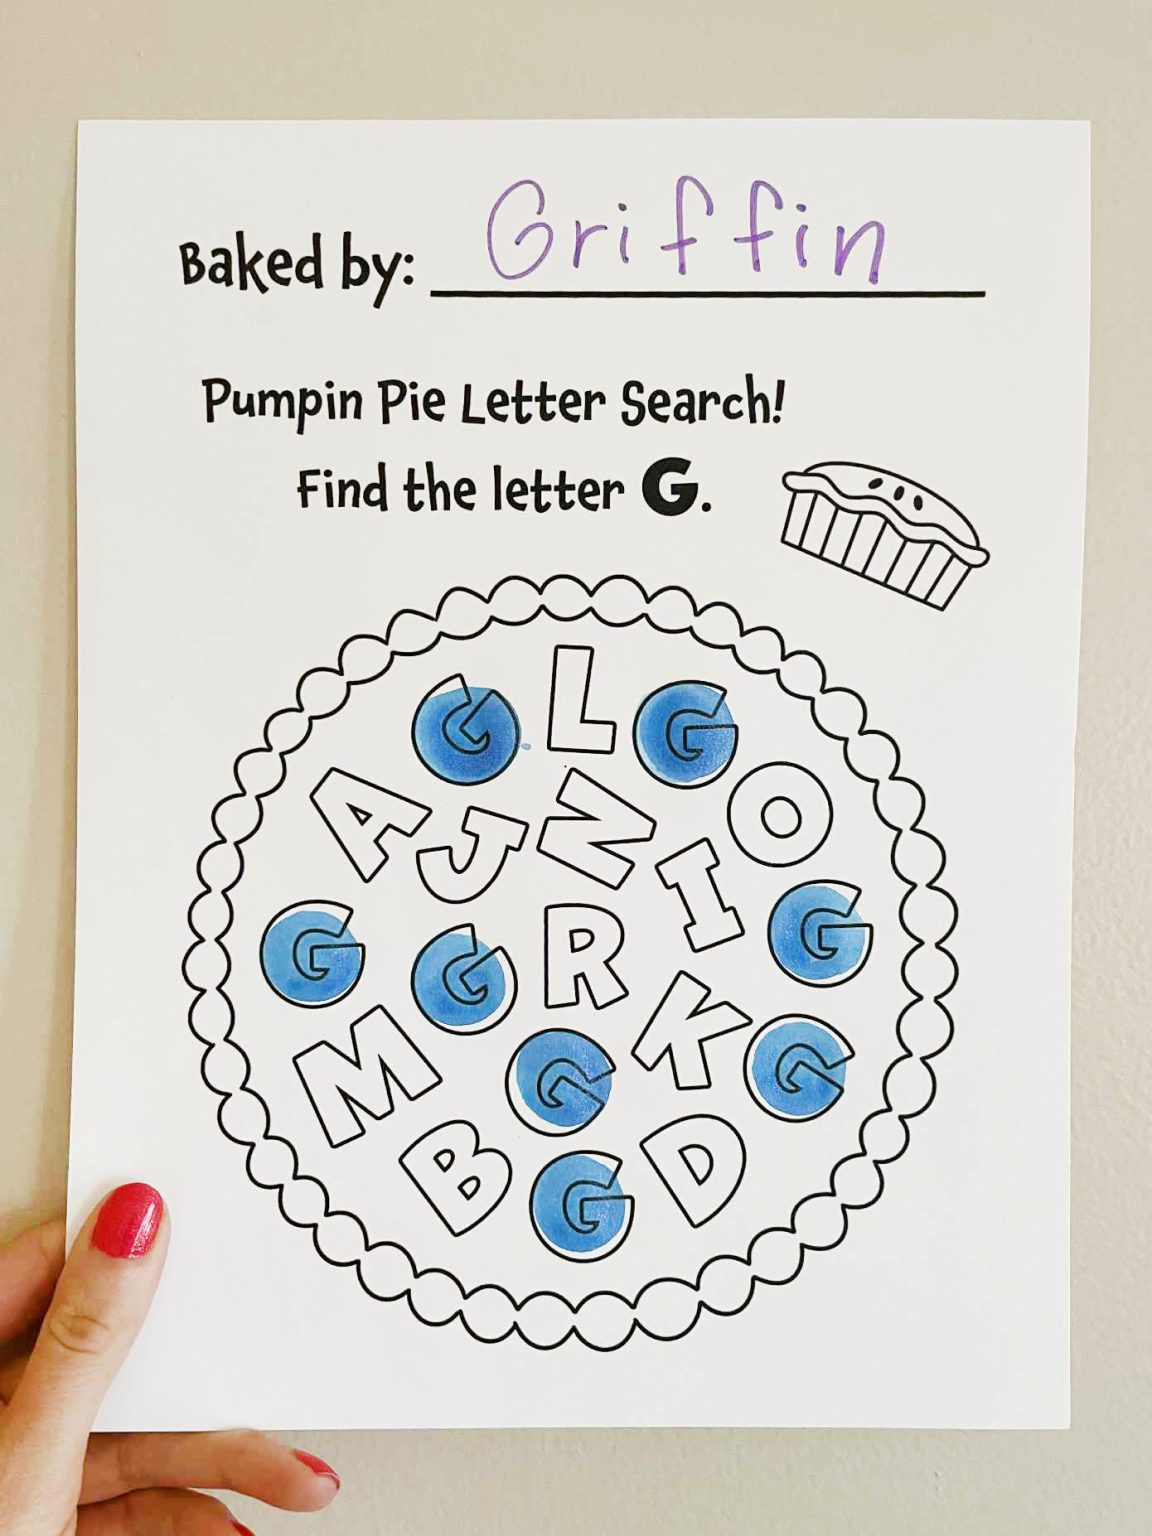 Baked by: Griffin
Pumpin Pie Letter Search!
Find the letter G.
G L G
A J N O
I
G G R G
M K
G G
B G D